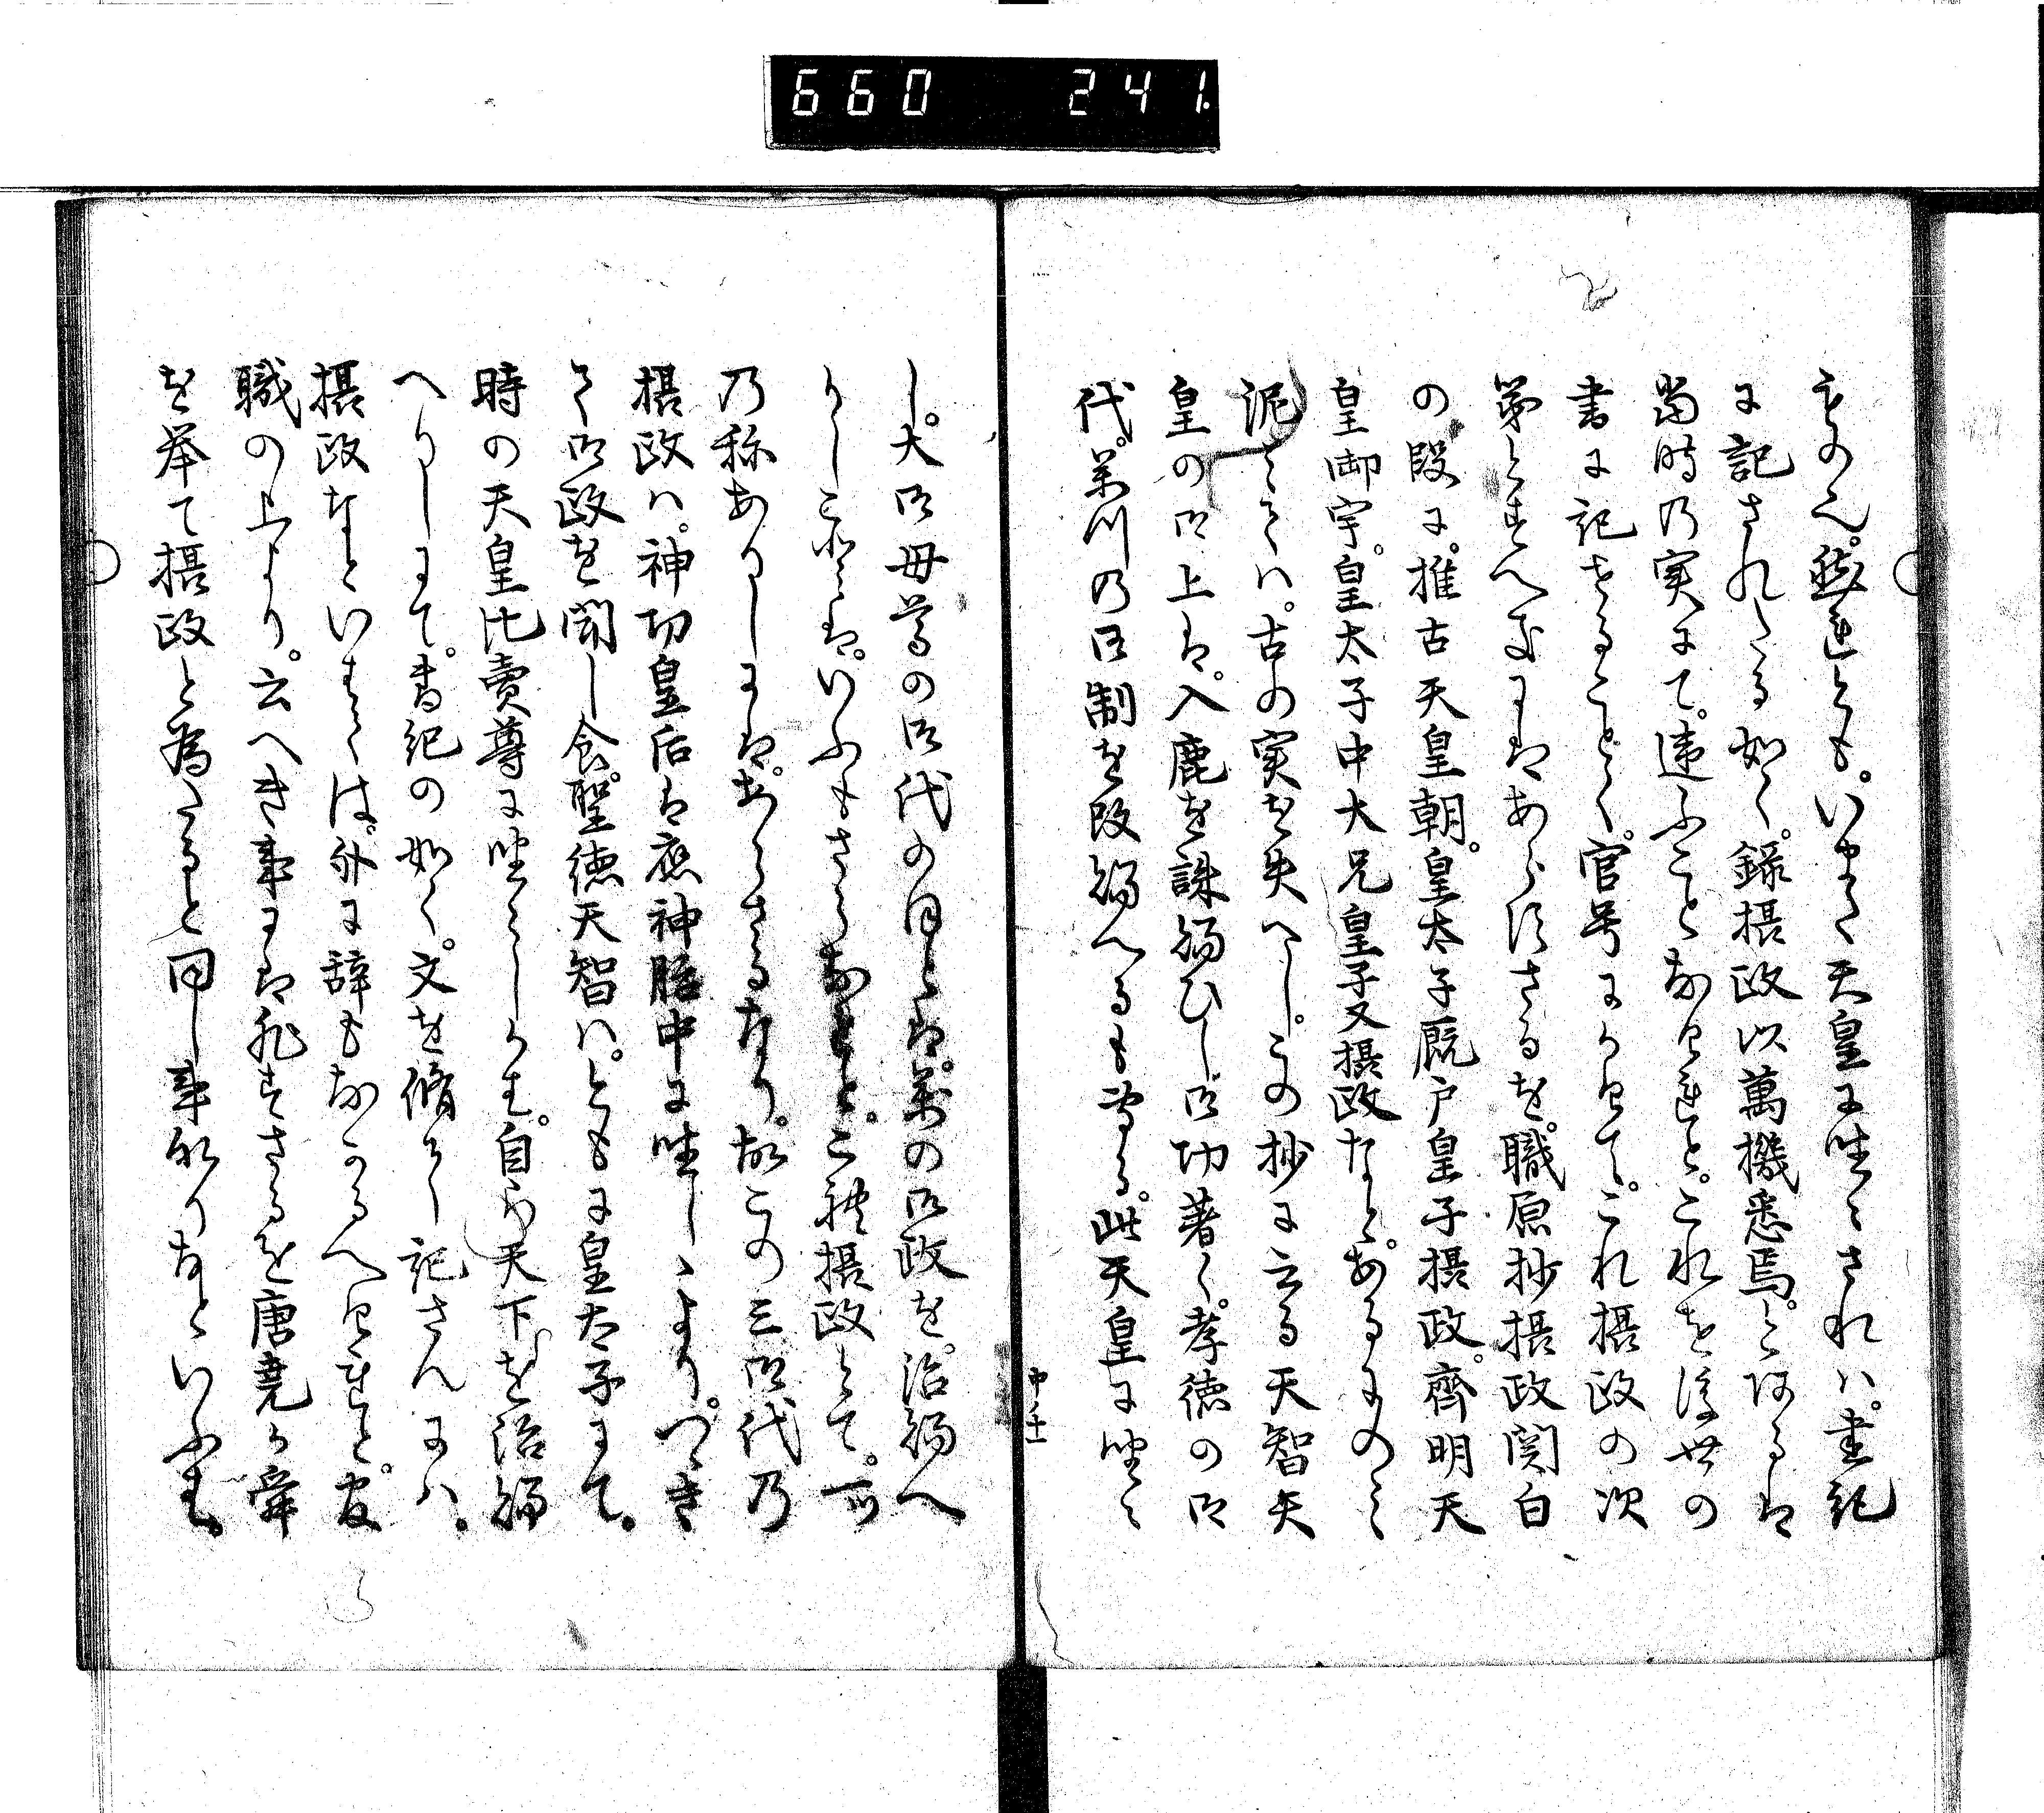 660 241.
ものへ。然連とも。いまた天皇に坐さされハ。書紀
に記されたる如く。録摂政以萬機悉焉。とあるは
当時乃実にて。違ふことなけれと。これを後世の
書に記せることく。官号にかけて。これ摂政の次
第とすへきにはあらさるを。職原抄摂政関白
の段に。推古天皇朝。皇太子厩戸皇子摂政。齊明天
皇御宇。皇太子中大兄皇子又摂政なと。あるにのミ
泥ミてハ。古の実を失へし。この抄に云る天智天
皇の御上は。入鹿を誅給ひし御功著く。孝徳の御
代。萬川乃御制を改給へるも坐る。此天皇に坐
中ノ十一
し。大御母尊の御代のほとは。萬の御政を。治給へ
りしこと。いふもさらなと。こを摂政とて。一つ
乃称ありしには。あらさるなり。故この三御代乃
摂政ハ。神功皇后は應神胎中に坐しゝより。つゝき
て御政を聞し食。聖徳天智ハ。ともに皇太子にて。
時の天皇比賣尊に坐しかは。自ら天下を治給
へりしにて。書紀の如く。文を脩て記さんにハ。
摂政なといはては。外に辞もなかるへけれと。官
職の上より。云へき事には非さるを唐堯か舜
を挙て摂政と為たると同し事なりなといふは。